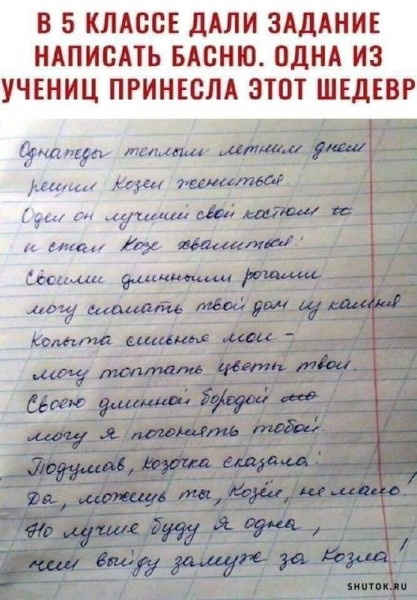 В 5 КЛАССЕ ДАЛИ ЗАДАНИЕ
НАПИСАТЬ БАСНЮ. ОДНА ИЗ
УЧЕНИЦ ПРИНЕСЛА ЭТОТ ШЕДЕВР
Однажды теплым летним днем
решил Козел жениться.
Одел он лучший свой костюм
и стал Козе хвалиться:
Своими длинными рогами
могу сломать твой дом из камня
Копыта сильные мои –
могу топтать цветы твои.
Своею длинной бородой
могу я погонять тобой.
Подумав, Козочка сказала:
Да, можешь ты, Козёл, не мало!
Но лучше буду я одна,
чем выйду замуж за Козла!
SHUTOK.RU